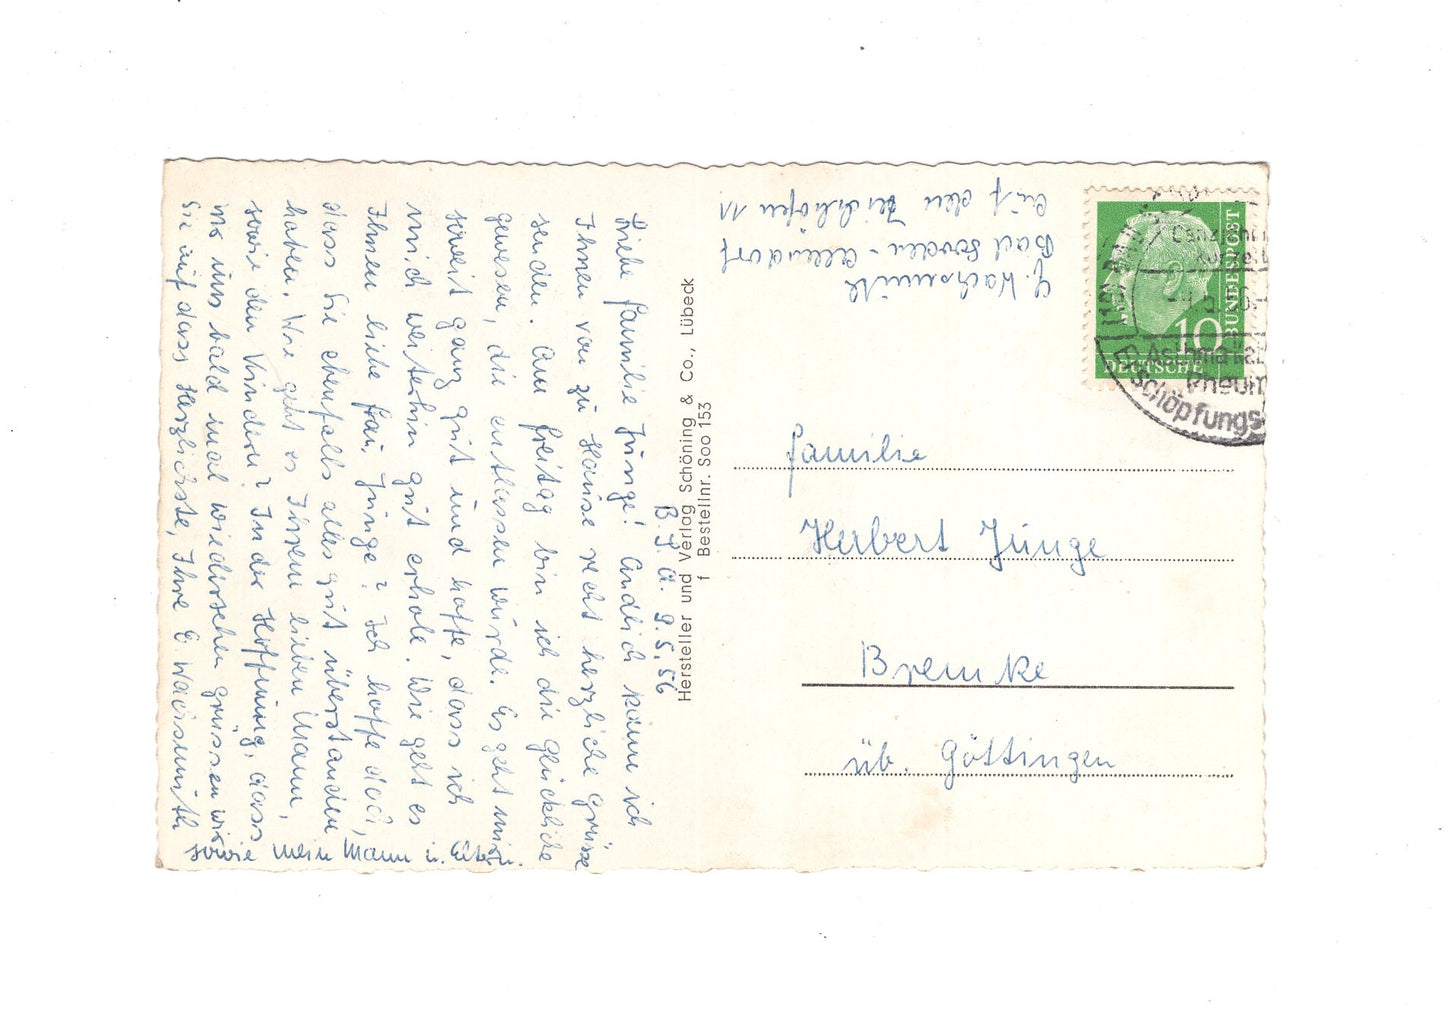 B. S. A. 9.5.56
Liebe Familie Junge! Endlich kann ich
Ihnen von zu Hause recht herzliche Grüsse
senden. Am Freitag bin ich die Glückliche
gewesen, die entlassen wurde. Es geht mir
soweit ganz gut und hoffe, dass ich
mich weiterhin gut erhole. Wie geht es
Ihnen liebe Frau Junge? Ich hoffe doch,
dass Sie ebenfalls alles gut überstanden
haben. Wie geht es Ihrem lieben Mann,
sowie den Kindern? In der Hoffnung, dass
wir uns bald mal wiedersehen grüssen wir
Sie auf das Herzlichste, Ihre E. Wachsmuth
sowie mein Mann u. Eltern.
Hersteller und Verlag Schöning & Co., Lübeck
f Bestellnr. Soo 153
Wachsmuth
Bad Sooden-Allendorf
Auf den 11
10
DEUTSCHE
BUNDESPOST
Asthma
Rheum
Erschöpfungs-
Familie
Herbert Junge
Bremke
üb. Göttingen